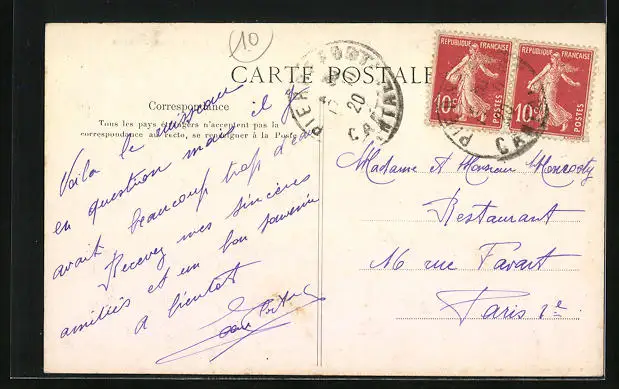 10
CARTE POSTALE
Correspondance
Tous les pays étrangers n'acceptent pas la
correspondance au recto, se renseigner à la Poste
Voila le ruisseau
en question mais il y
avait beaucoup trop d'eau
Recevez mes sincères
amitiés et un bon souvenir
a bientot
PIERREFORT
20
CANTAL
REPUBLIQUE FRANÇAISE
10c
POSTES
REPUBLIQUE FRANÇAISE
10c
POSTES
Madame et Monsieur
Restaurant
16 rue Favart
Paris 2e